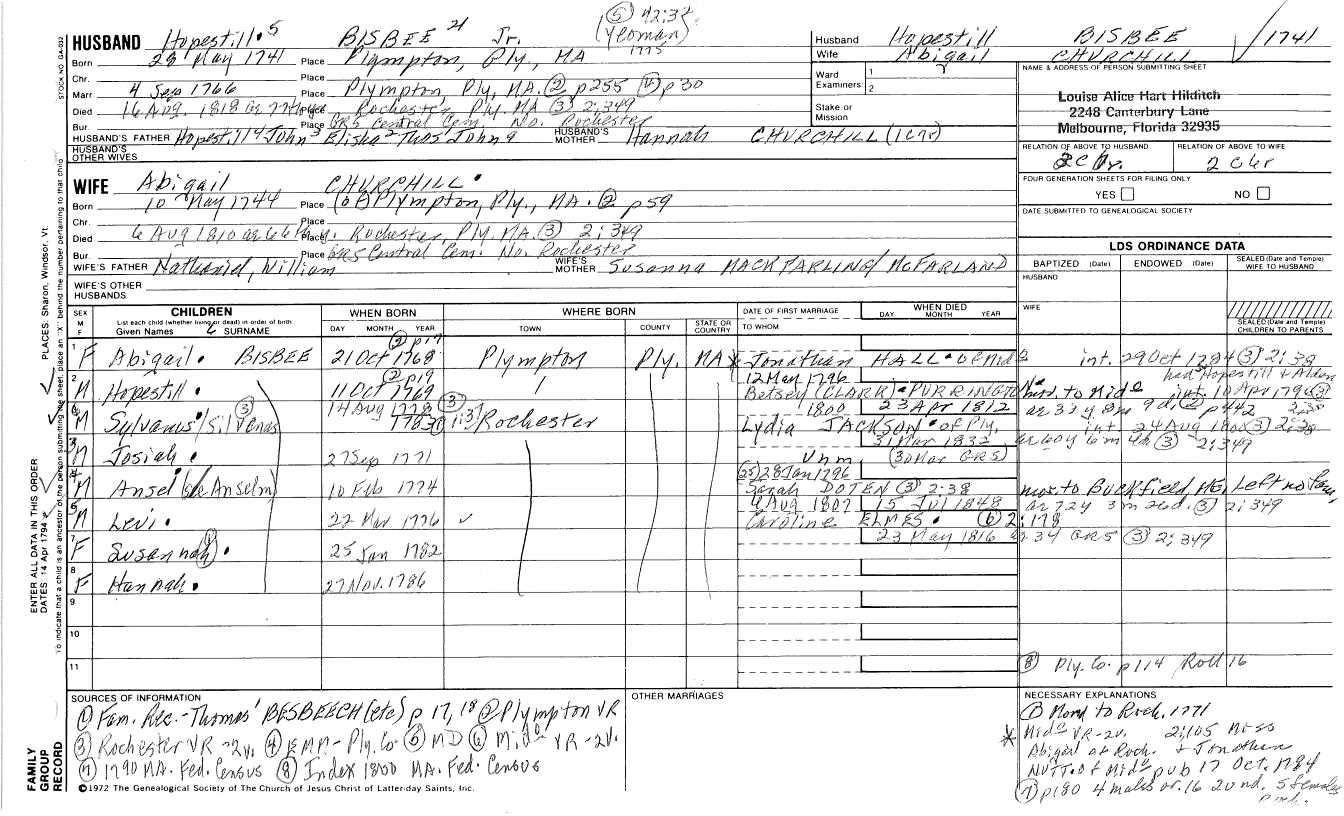 ⑤ 42:32
HUSBAND Hopestill. 5 BISBEE Jr. (Yeoman) 1775
Born 28 May 1741 Place Plympton, Ply, MA
Chr. Place
Marr 4 Sep 1766 Place Plympton, Ply, MA. ② p255 ④ p30
Died 16 Aug. 1818 Place Rochester, Ply. MA ③ 2:349
Bur. Place GR5 Central Cem. No. Rochester
HUSBAND'S FATHER Hopestill 4 John 3 Elisha 2 Thos John HUSBAND'S MOTHER Hannah CHURCHILL
HUSBAND'S OTHER WIVES
Husband Hopestill BISBEE 1741
Wife Abigail CHURCHILL
Ward Examiners: 1
2
Stake or Mission
NAME & ADDRESS OF PERSON SUBMITTING SHEET
Louise Alice Hart Hilditch
2248 Canterbury Lane
Melbourne, Florida 32935
RELATION OF ABOVE TO HUSBAND RELATION OF ABOVE TO WIFE
FOUR GENERATION SHEETS FOR FILING ONLY
YES NO
DATE SUBMITTED TO GENEALOGICAL SOCIETY
WIFE Abigail CHURCHILL.
Born 10 May 1744 Place Plympton, Ply., MA. ② p59
Chr. Place
Died 6 Aug 1810 ae 66 Place Rochester, Ply. MA. ③ 2:349
Bur. Place GR5 Central Cem. No. Rochester
WIFE'S FATHER Nathaniel, William WIFE'S MOTHER Susanna MACKFARLING/McFARLAND
WIFE'S OTHER HUSBANDS.
LDS ORDINANCE DATA
BAPTIZED (Date) ENDOWED (Date) SEALED (Date and Temple) WIFE TO HUSBAND
HUSBAND
WIFE
SEALED (Date and Temple) CHILDREN TO PARENTS
SEX M F CHILDREN WHEN BORN WHERE BORN DATE OF FIRST MARRIAGE WHEN DIED
List each child (whether living or dead) in order of birth
Given Names SURNAME DAY MONTH YEAR TOWN COUNTY STATE OR COUNTRY TO WHOM DAY MONTH YEAR
② p19
1 F Abigail. BISBEE 21 Oct 1768 Plympton Ply. MA Jonathan HALL. int. 29 Oct 1784 ③ 2:38
had Hopestill & Alden
② p19 12 May 1796
2 M Hopestill. 11 Oct 1769 Betsey (CLARK). PURRINGTON int 10 Apr 1796 ③ 2:38
M Sylvanus/Silvenas ③ 14 Aug 1778 ③ 1:37 Rochester 1800 23 Apr 1812 p442
Lydia JACKSON. of Ply, int. 24 Aug 1800 ③ 2:38
31 Mar 1832 ③ 2:349
M Josiah. 27 Sep 1771 Unm (30 Mar GR5)
(25) 28 Jan 1796
M Ansel Anselm) 10 Feb 1774 Sarah DOTEN ③ 2:38 mov. to Buckfield, ME. Left no fam,
9 Aug 1807 15 Jul 1848 ae 72y 3m 26d. ③ 2:349
M Levi. 22 Mar 1776 Caroline ELMES. ⑥ 2:178
23 May 1816 ae 34 GR5 ③ 2:349
7 F Susannah. 25 Jan 1782
8 F Hannah. 27 Nov. 1786
9
10
11
⑧ Ply. Co. p114 Roll 16
SOURCES OF INFORMATION
① Fam. Rec.-Thomas BESBEECH (etc) p 17, 18 ② Plympton VR
③ Rochester VR -2v. ④ EMM- Ply. Co ⑤ MD ⑥ Mid° VR -2v.
⑦ 1790 MA. Fed. Census ⑧ Index 1800 MA. Fed. Census
©1972 The Genealogical Society of The Church of Jesus Christ of Latter-day Saints, Inc.
OTHER MARRIAGES
NECESSARY EXPLANATIONS
① Movd to Roch, 1771
* Mid° VR-2v. 2:105 Miss
Abigail of Roch. & Jonathan
NUTT. of Mid° pub 17 Oct. 1784
⑦ p180 4 males ov. 16 2 und. 5 females
STOCK NO. GA-032
PLACES: Sharon, Windsor, Vt.
ENTER ALL DATA IN THIS ORDER
DATES 14 Apr 1794
To indicate that a child is an ancestor of the person submitting the sheet, place an "X" behind the number pertaining to that child
FAMILY GROUP RECORD